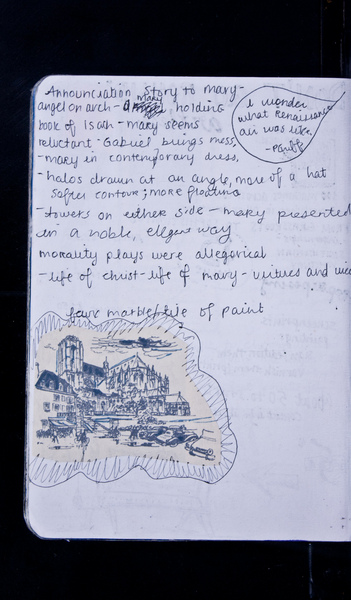 Announciation Story to mary-
angel on arch - Mary holding
book of Isaah - mary seems
reluctant - Gabriel brings mess,
- mary in contemporary dress,
- halos drawn at an angle, more of a hat
Softer contour; more floating
- towers on either side - mary presented
in a noble, elegent way
morality plays were allegorical
- life of christ - life of mary - virtures and vices
faux marble/ife of paint
I wonder
what Renaissance
air was like.